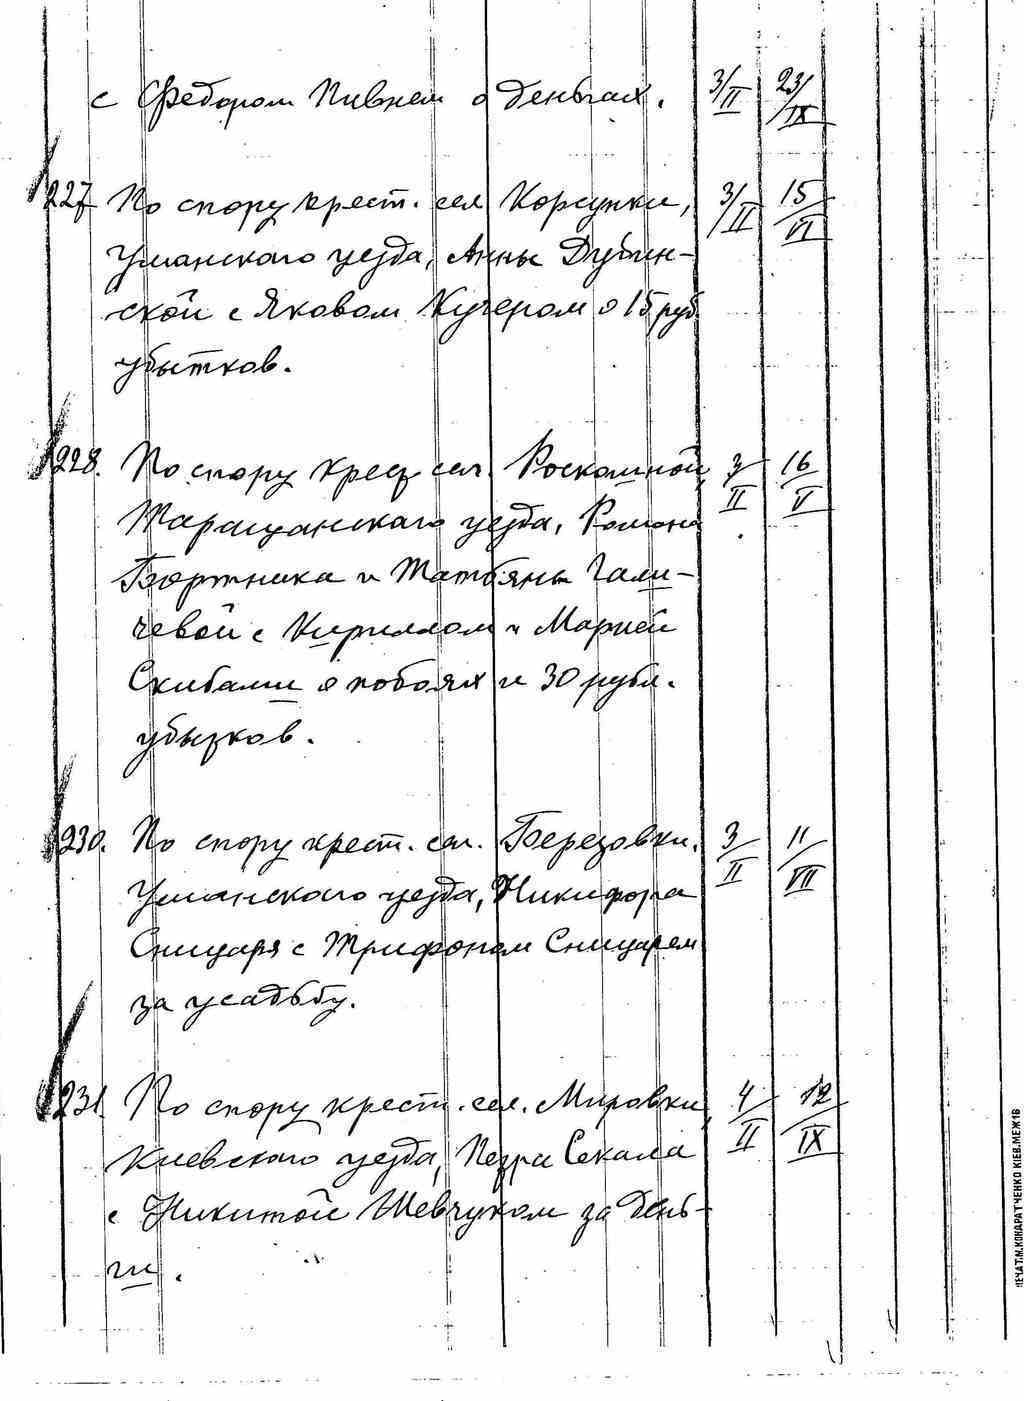 с Федором Пивнем о деньгах. 3/II 23/IX
227 По спору крест. сел Корсунки, 3/II 15/VI
Уманского уезда, Анны Дубин-
ской с Яковом Кучером о 15 руб
убытков.
228. По спору крест сел. Роскошной, 3/II 16/V
Таращанскаго уезда, Романа
Бортника и Татьяны Гали-
чевой с Кириллом и Марией
Скибами о побоях и 30 рубл.
убытков.
230. По спору крест. сел. Березовки, 3/II 11/VII
Уманского уезда, Никифора
Сницаря с Трифоном Сницарем
за усадьбу.
231 По спору крест. сел. Мировки, 4/II 12/IX
Киевского уезда, Петра Секала
с Никитой Шевчуком за день-
ги.
ПЕЧАТ.М.КОНДРАТЧЕНКО КІЕВ.МЕЖ1В